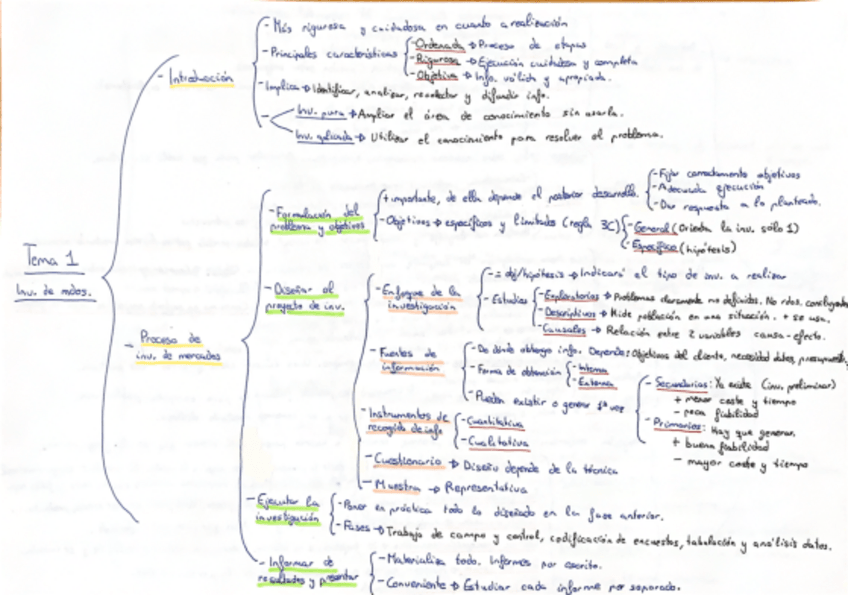 Tema 1
Inv. de mdos.
- Introducción
- Más rigurosa y cuidadosa en cuanto a realización
- Principales características
- Ordenada → Proceso de etapas
- Rigurosa → Ejecución cuidadosa y completa
- Objetiva → Info. válida y apropiada.
- Implica → Identificar, analizar, recolectar y difundir info.
- Inv. pura → Ampliar el área de conocimiento sin usarla.
Inv. aplicada → Utilizar el conocimiento para resolver el problema.
- Proceso de
inv. de mercados
- Formulación del
problema y objetivos
+ importante, de ella depende el posterior desarrollo.
- Fijar correctamente objetivos
- Adecuada ejecución
- Dar respuesta a lo planteado.
- Objetivos → específicos y limitados (regla 3C)
- General (Orienta la inv. sólo 1)
- Específico (hipótesis)
- Diseñar el
proyecto de inv.
- Enfoque de la
investigación
- = obj/hipótesis → Indicará el tipo de inv. a realizar
- Estudios
- Exploratorios → Problemas claramente no definidos. No rdos. concluyentes
- Descriptivos → Mide población en una situación. + se usa.
- Causales → Relación entre 2 variables causa-efecto.
- Fuentes de
información
- De dónde obtengo info. Depende: Objetivos del cliente, necesidad datos, presupuesto,
- Forma de obtención
- Interna
- Externa
- Pueden existir o generar 1ª vez
- Secundarias: Ya existe (inv. preliminar)
+ menor coste y tiempo
- poca fiabilidad
- Primarias: Hay que generar.
+ buena fiabilidad
- mayor coste y tiempo
- Instrumentos de
recogida de info
- Cuantitativa
- Cualitativa
- Cuestionario → Diseño depende de la técnica
- Muestra → Representativa
- Ejecutar la
investigación
- Poner en práctica todo lo diseñado en la fase anterior.
- Fases → Trabajo de campo y control, codificación de encuestas, tabulación y análisis datos.
- Informar de
resultados y presentar
- Materializa todo. Informes por escrito.
- Conveniente → Estudiar cada informe por separado.